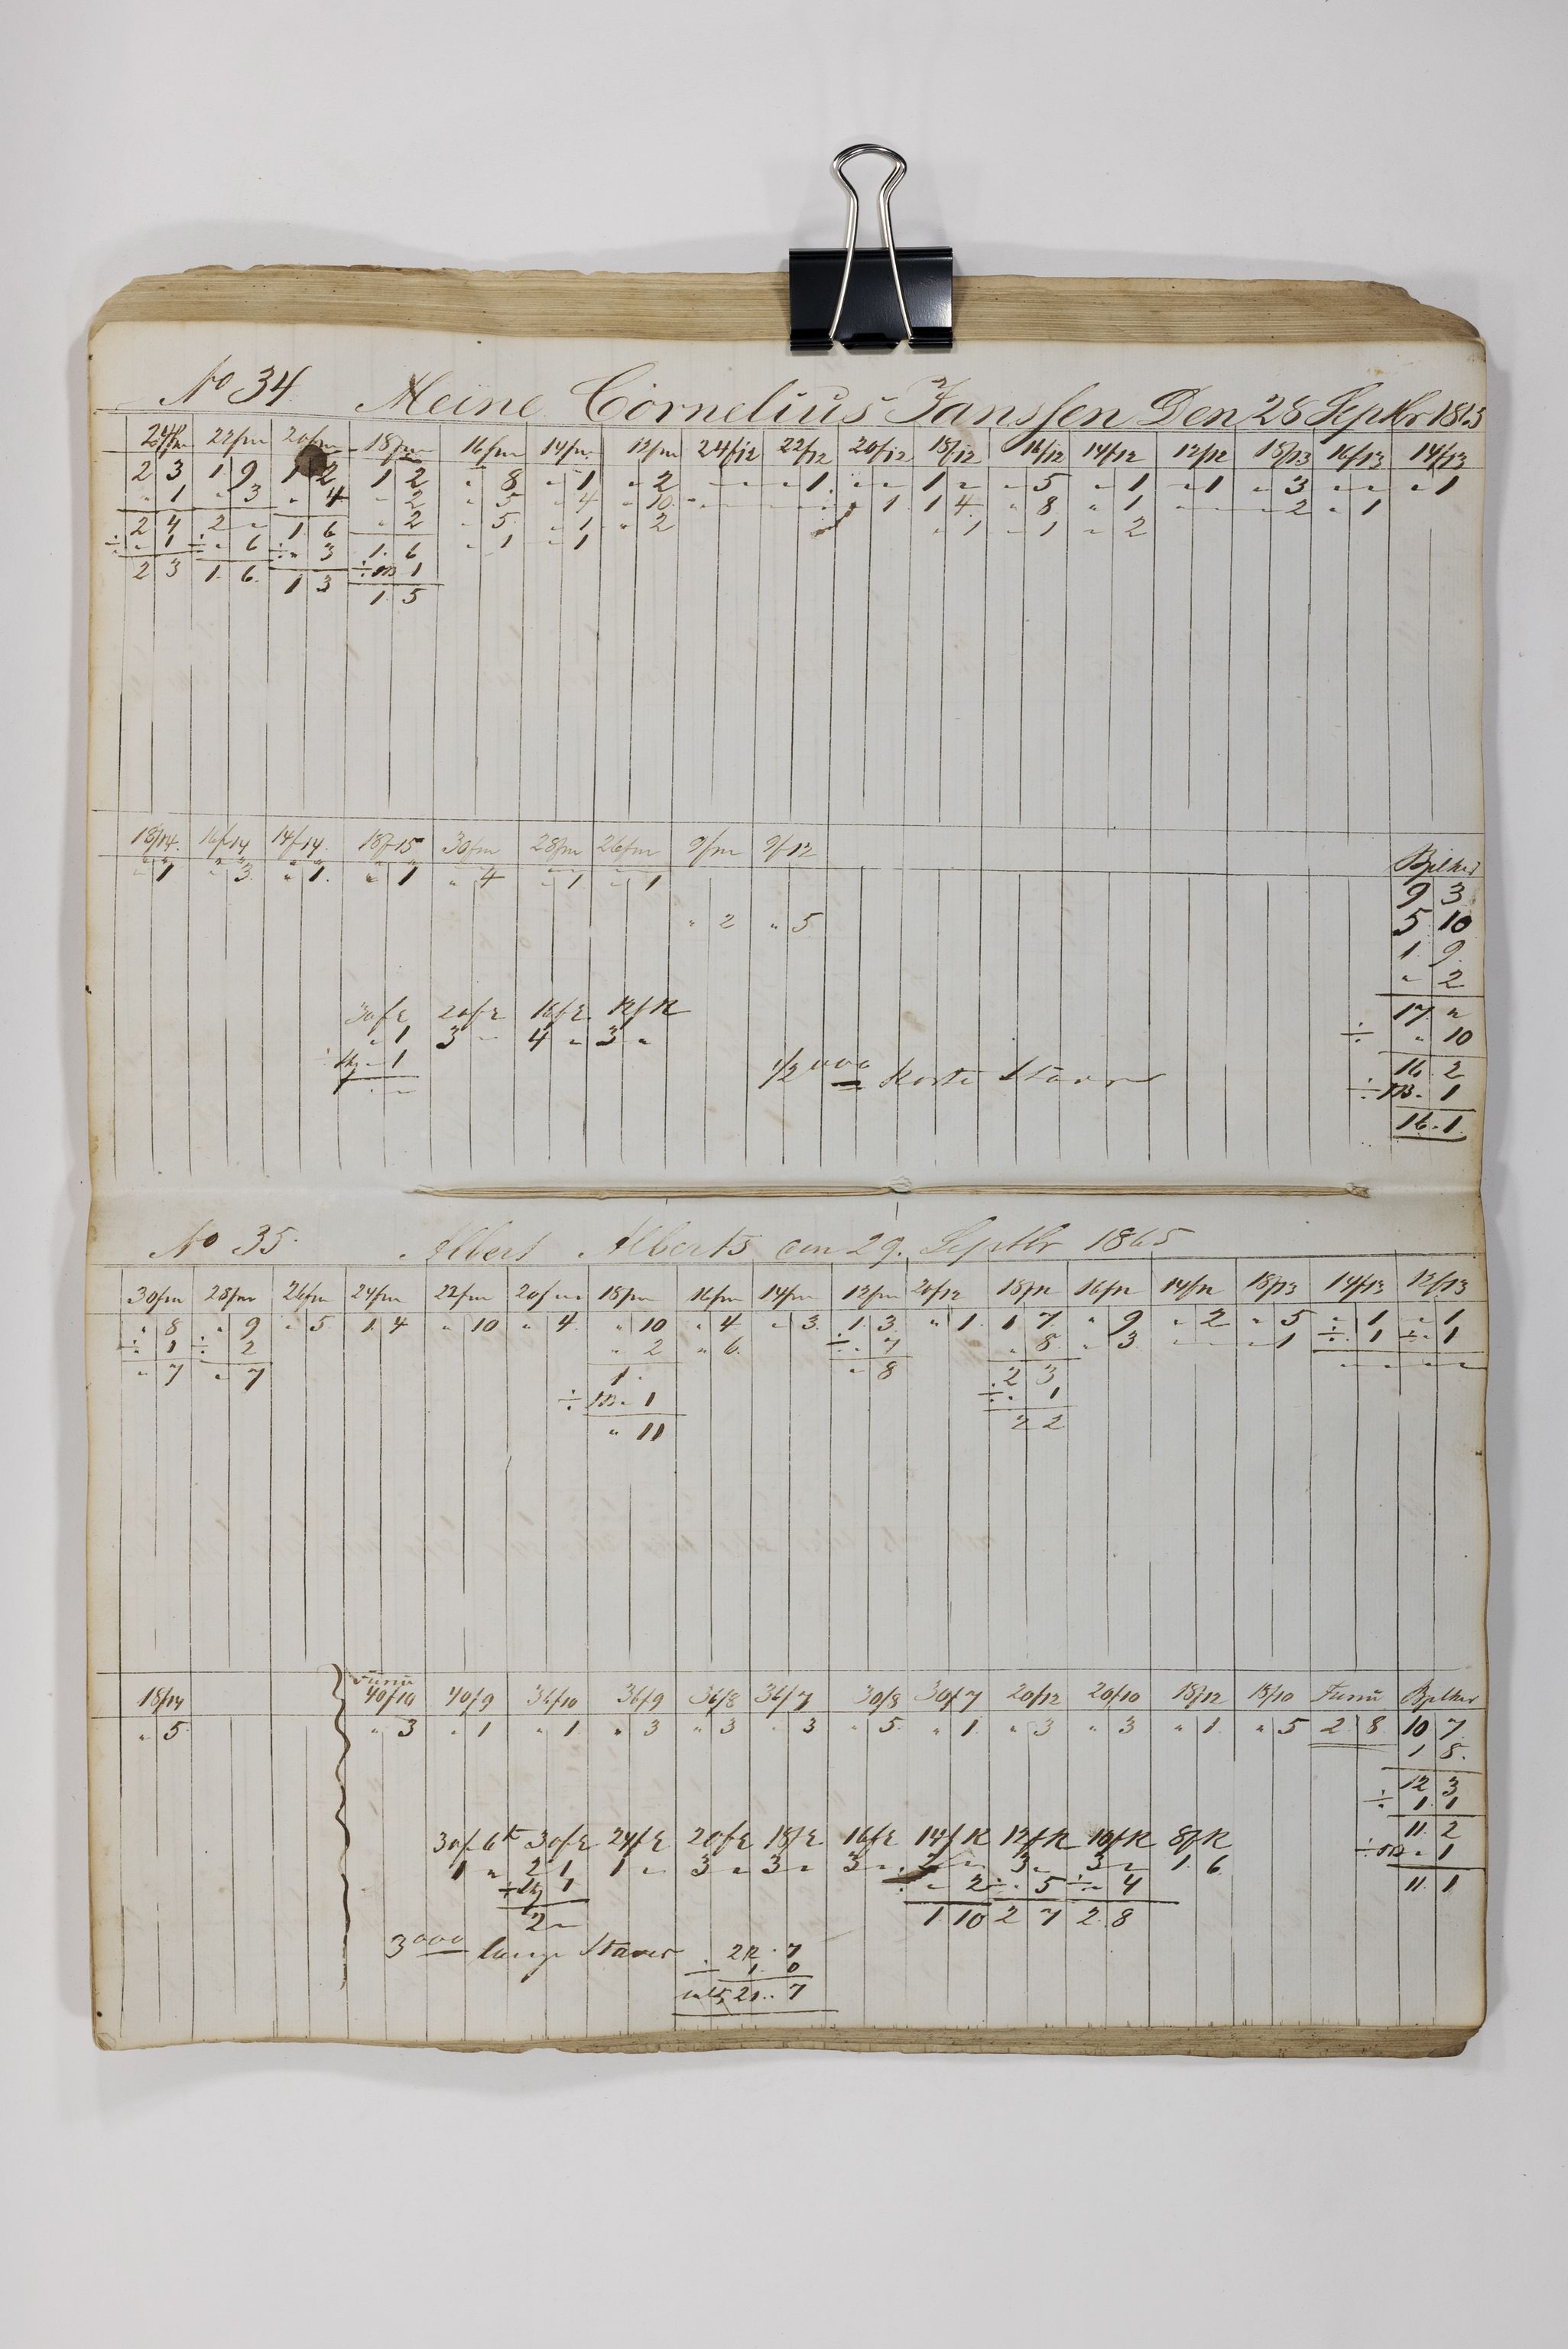 No 34 Meine Cornelius Janssen Den 28 Septbr 1865
24/m 22/m 20/m 18/m 16/m 14/m 12/m 24/12 22/12 20/12 18/12 16/12 14/12 12/12 18/13 16/13 14/13
2 3 1 9 1 2 1 2 " 8 " 1 " 2 " " " 1 " " 1 " " 5 " 1 " 1 " 3 " " " 1
" 1 " 3 " 4 " 2 " 5 " 4 " 10 " 1 1 4 " 8 " 1 " 2 " 1
2 4 2 " 1 6 " 2 " 5 " 1 " 2 " 1 " 1 " 2
÷ " 1 ÷ " 6 ÷ " 3 1 6 " 1 " 1
2 3 1 6 1 3 ÷ 1
1 5
18/14 16/14 14/14 18/15 30/m 28/m 26/m 9/m 9/12 Bjelker
" 1 " 3 " 1 " 1 " 4 " 1 " 1 9 3
" 2 " 5 5 10
1 9
" 2
30/E 20/E 16/E 12/K 17 "
" 1 3 " 4 " 3 " ÷ " 10
" 1 1/2 000 korte Staver 16 2
÷ " 1
16 1
No 35 Albert Alberts den 29. Septbr 1865
30/m 28/m 26/m 24/m 22/m 20/m 18/m 16/m 14/m 12/m 20/12 18/12 16/12 14/12 18/13 14/13 12/13
" 8 " 9 " 5 1 4 " 10 " 4 " 10 " 4 " 3 1 3 " 1 1 7 " 9 " 2 " 5 " 1 " 1
÷ 1 ÷ 2 " 2 " 6 ÷ " 7 " 8 " 3 " 1 ÷ 1 ÷ 1
" 7 " 7 1 " 8 2 3 " " " "
÷ " 1 ÷ " 1
" 11 2 2
18/14 40/10 40/9 36/10 36/9 36/8 36/7 30/8 30/7 20/12 20/10 18/12 18/10 Furru Bjelker
" 5 " 3 " 1 " 1 " 3 " 3 " 3 " 5 " 1 " 3 " 3 " 1 " 5 2 8 10 7
1 8
12 3
÷ 1 1
30/E 24/E 20/E 18/E 16/E 14/K 12/K 10/K 8/K 11 2
1 " 2 1 1 " 3 " 3 " 3 " 2 " 3 " 3 " 1 6 ÷ " 1
÷ 1 ÷ " 2 ÷ " 5 ÷ " 4 11 1
2 " 1 10 2 7 2 8
3000 lange Staver 22 7
÷ 1 0
21 7